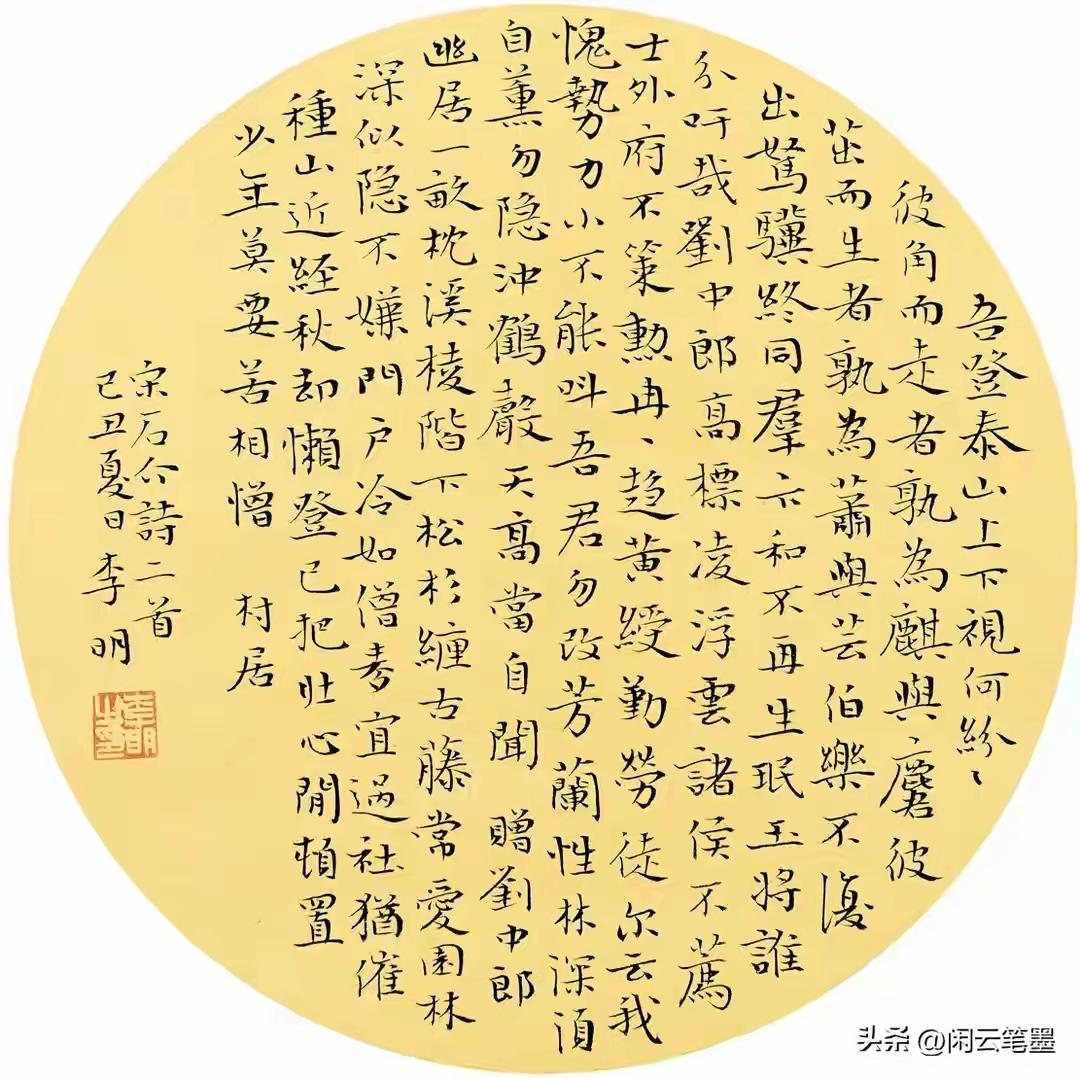 吾登泰山上下視何紛〻
彼角而走者孰為麒與麏彼
茁而生者孰為蕭與芸伯樂不復
出駑驥終同羣卞和不再生珉玉將誰
分吁哉劉中郎高標凌浮雲諸侯不薦
士外府不策勲冉丶趍黄綬勤勞徒尔云我
愧勢力小不能叫吾君勿改芳蘭性林深須
自薰勿隐沖鶴聲天高當自聞 贈劉中郎
幽居一畝枕溪棱階下松杉纏古藤常愛園林
深似隐不嫌門户冷如僧麥宜過社猶催
種山近經秋却懶登已把壯心閒頓置
少年莫要苦相憎 村居
宋石介詩二首
己丑夏日李明
头条 @闲云笔墨